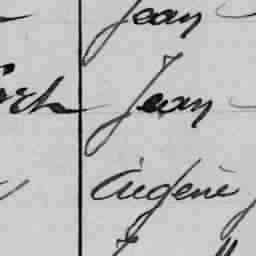 Jean
Jean
Eugène